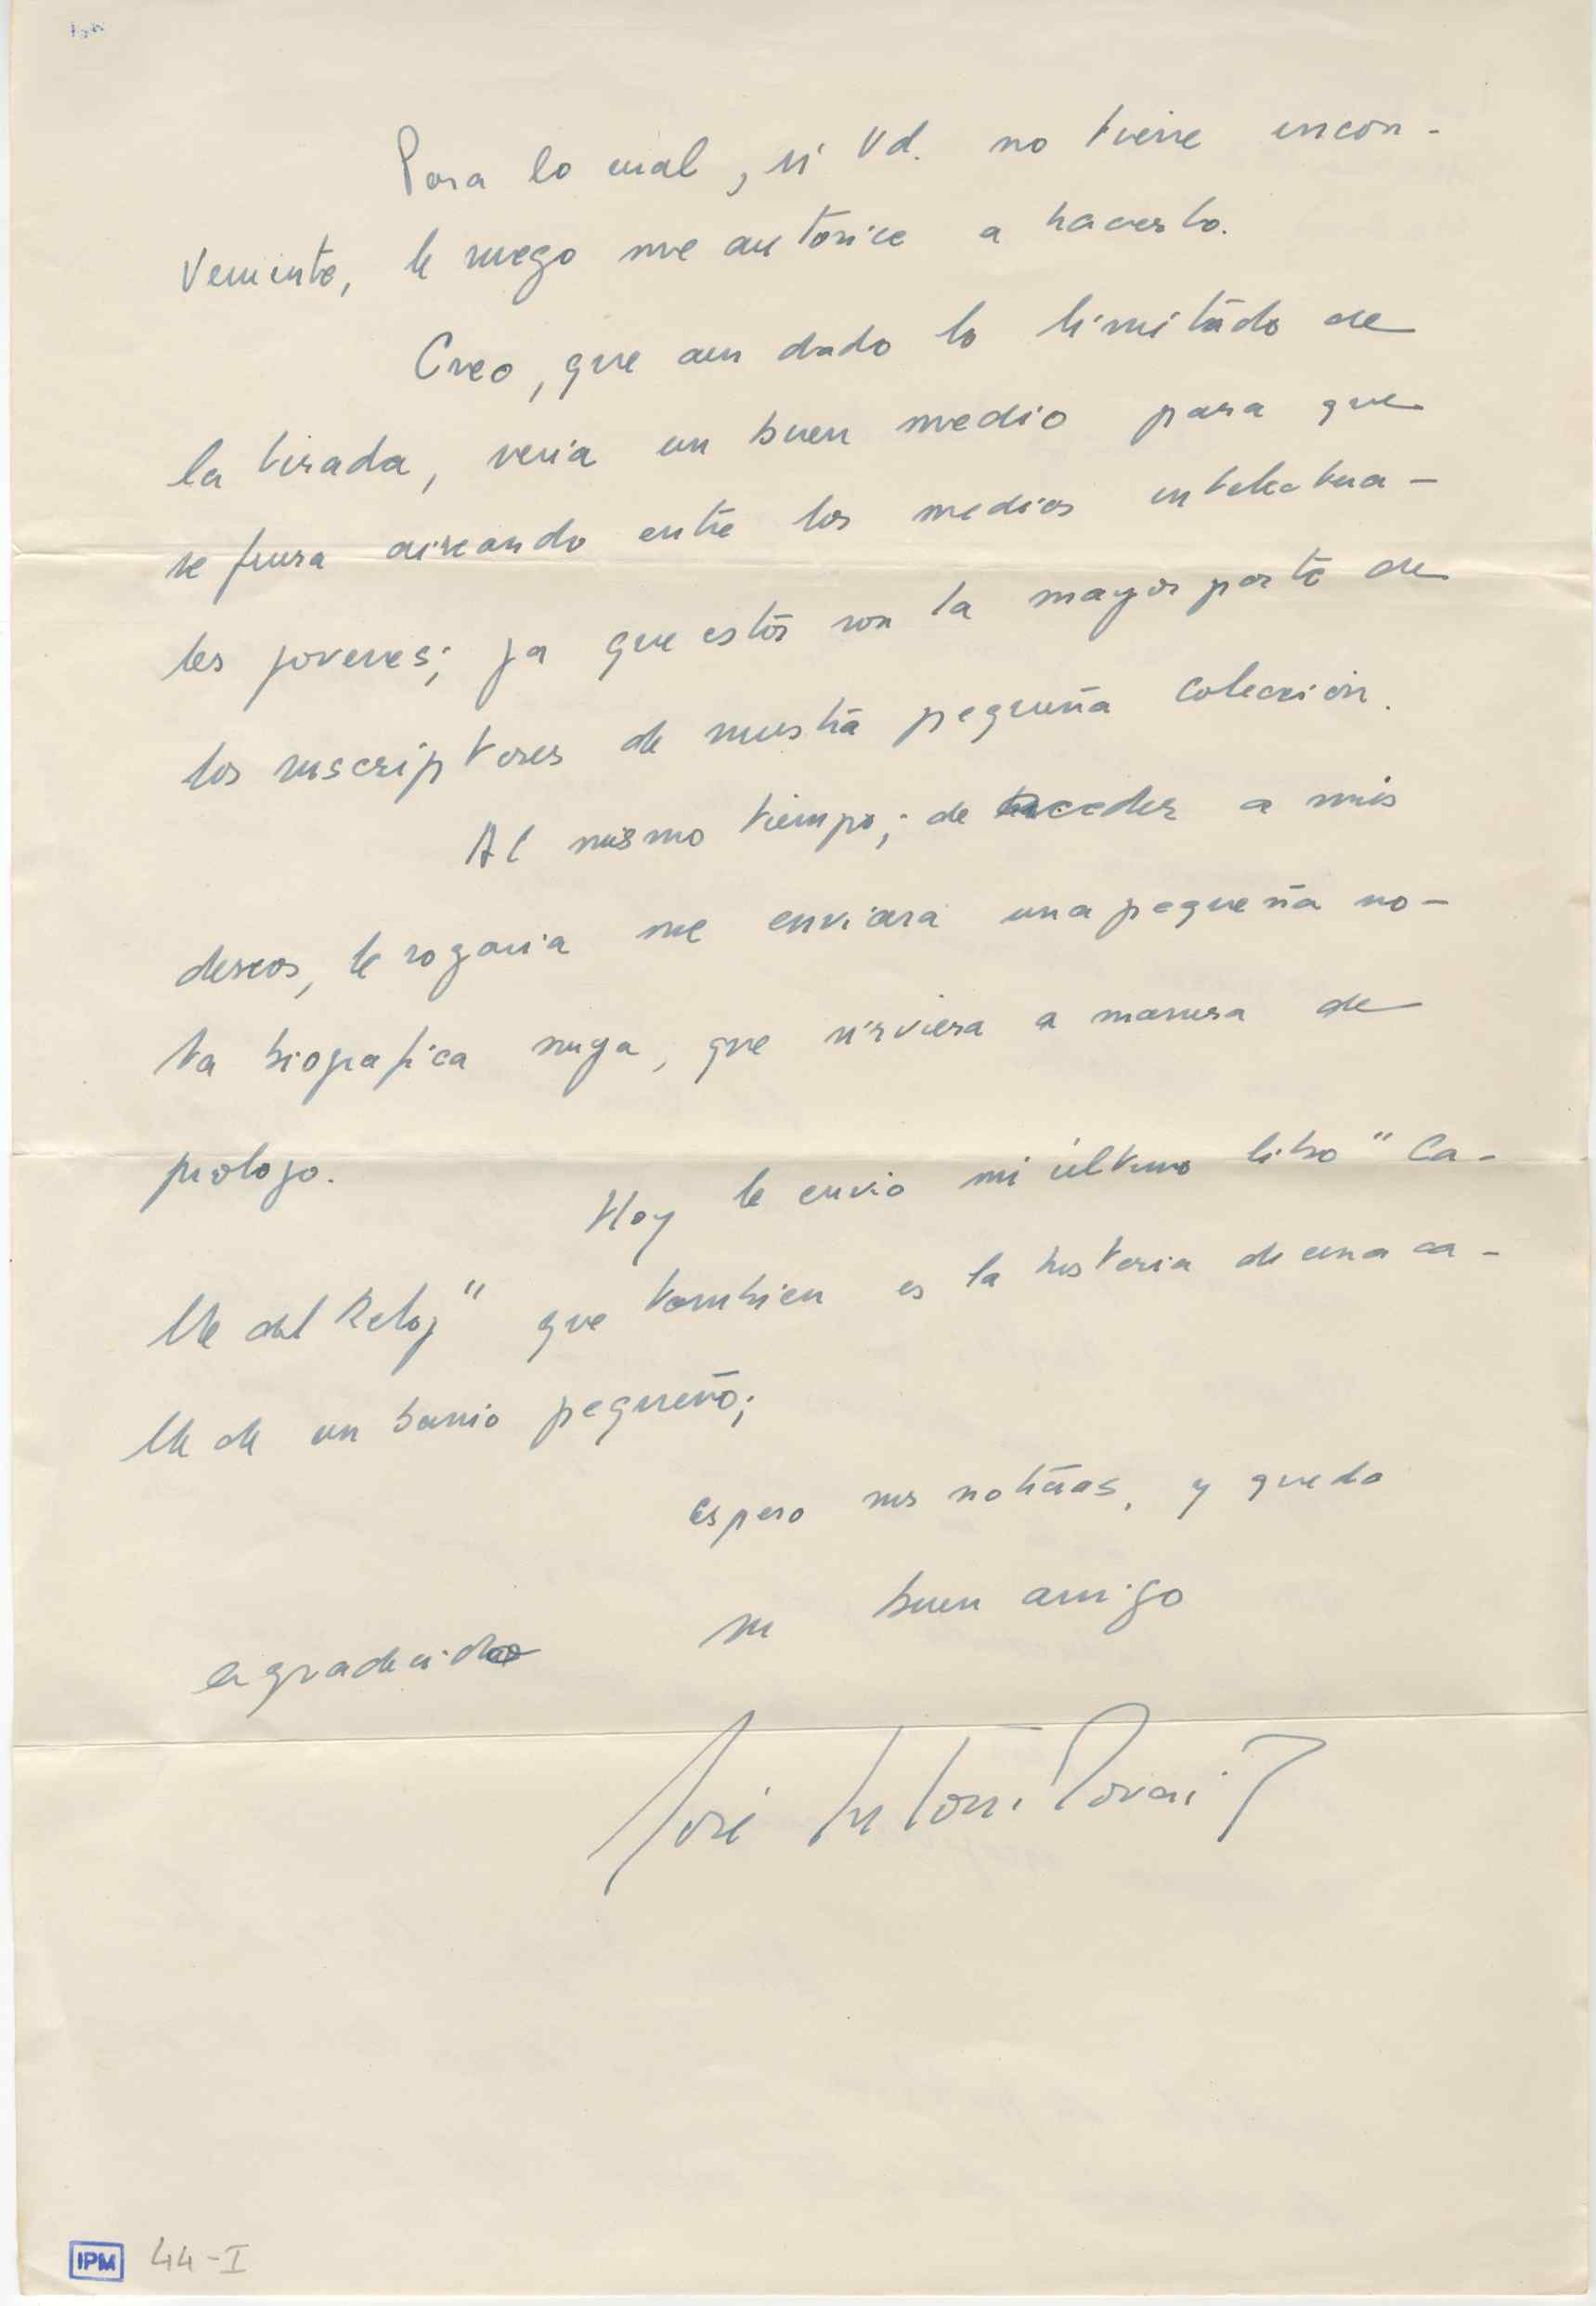 Para lo cual, si Vd. no tiene incon-
veniente, le ruego me autorice a hacerlo.
Creo, que aun dado lo limitado de
la tirada, seria un buen medio para que
se fuera aireando entre los medios intelectua-
les jovenes; ya que estos son la mayor parte de
los suscriptores de nuestra pequeña colección.
Al mismo tiempo; de acceder a mis
deseos, le rogaria me enviara una pequeña no-
ta biografica suya, que sirviera a manera de
prologo.
Hoy le envio mi último libro "Ca-
lle del Reloj" que tambien es la historia de una ca-
lle de un barrio pequeño;
espero sus noticias, y quedo
su buen amigo
agradecido
José Antoni
IPM 44-I